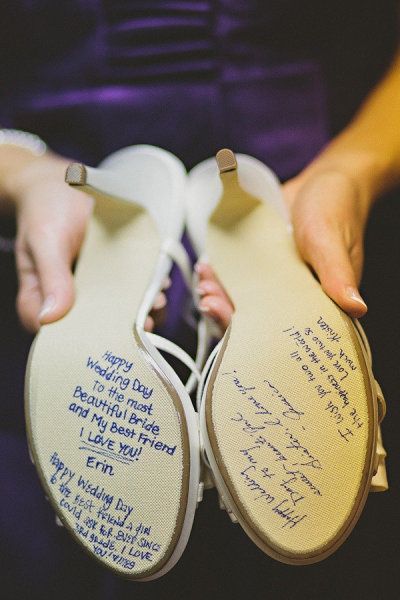 Happy
Wedding Day
To the most
Beautiful Bride
and My Best Friend
I LOVE YOU!
Erin
Happy Wedding Day
to the best friend a girl
could ask for ever since
3rd grade. I LOVE
YOU!
I wish you two all
the happiness in the world!
Love you two so
much. Kristen
Happy Wedding
Day To My
sweet
Sister! I love you!